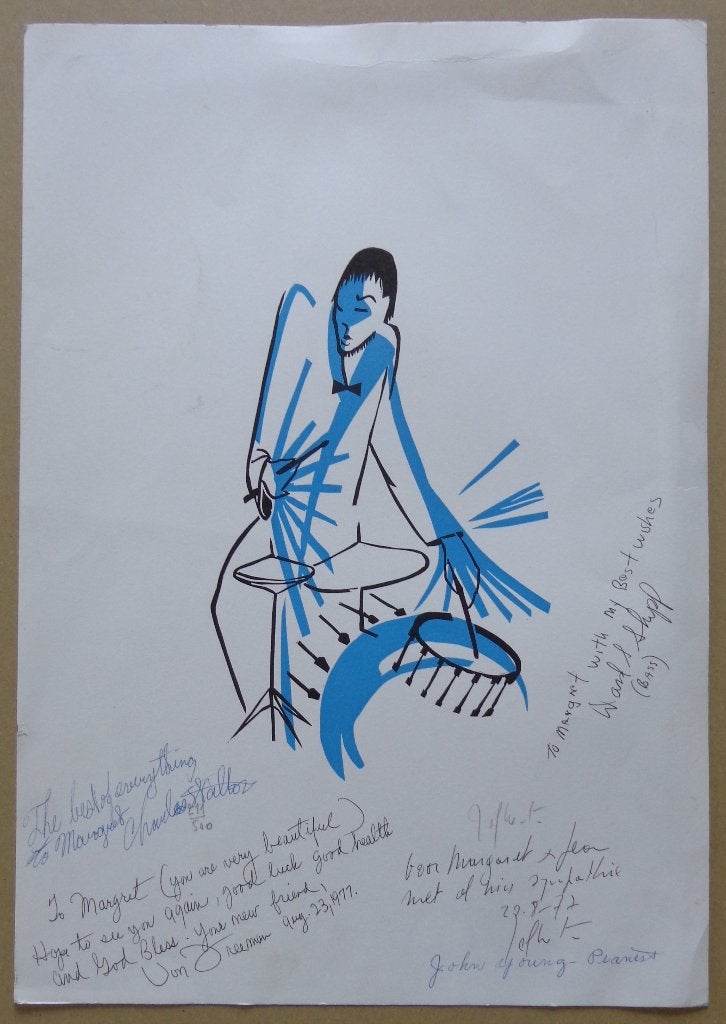 The best of everything
to Margret Charles Walton
211
500
To Margret (you are very beautiful)
Hope to see you again, good luck good health
and God Bless! Your new friend,
Von Freeman Aug. 23, 1977.
To Margret with my Best wishes
(Bass)
Voor Margaret &
met al mijn sympathie
John Young - Pianist